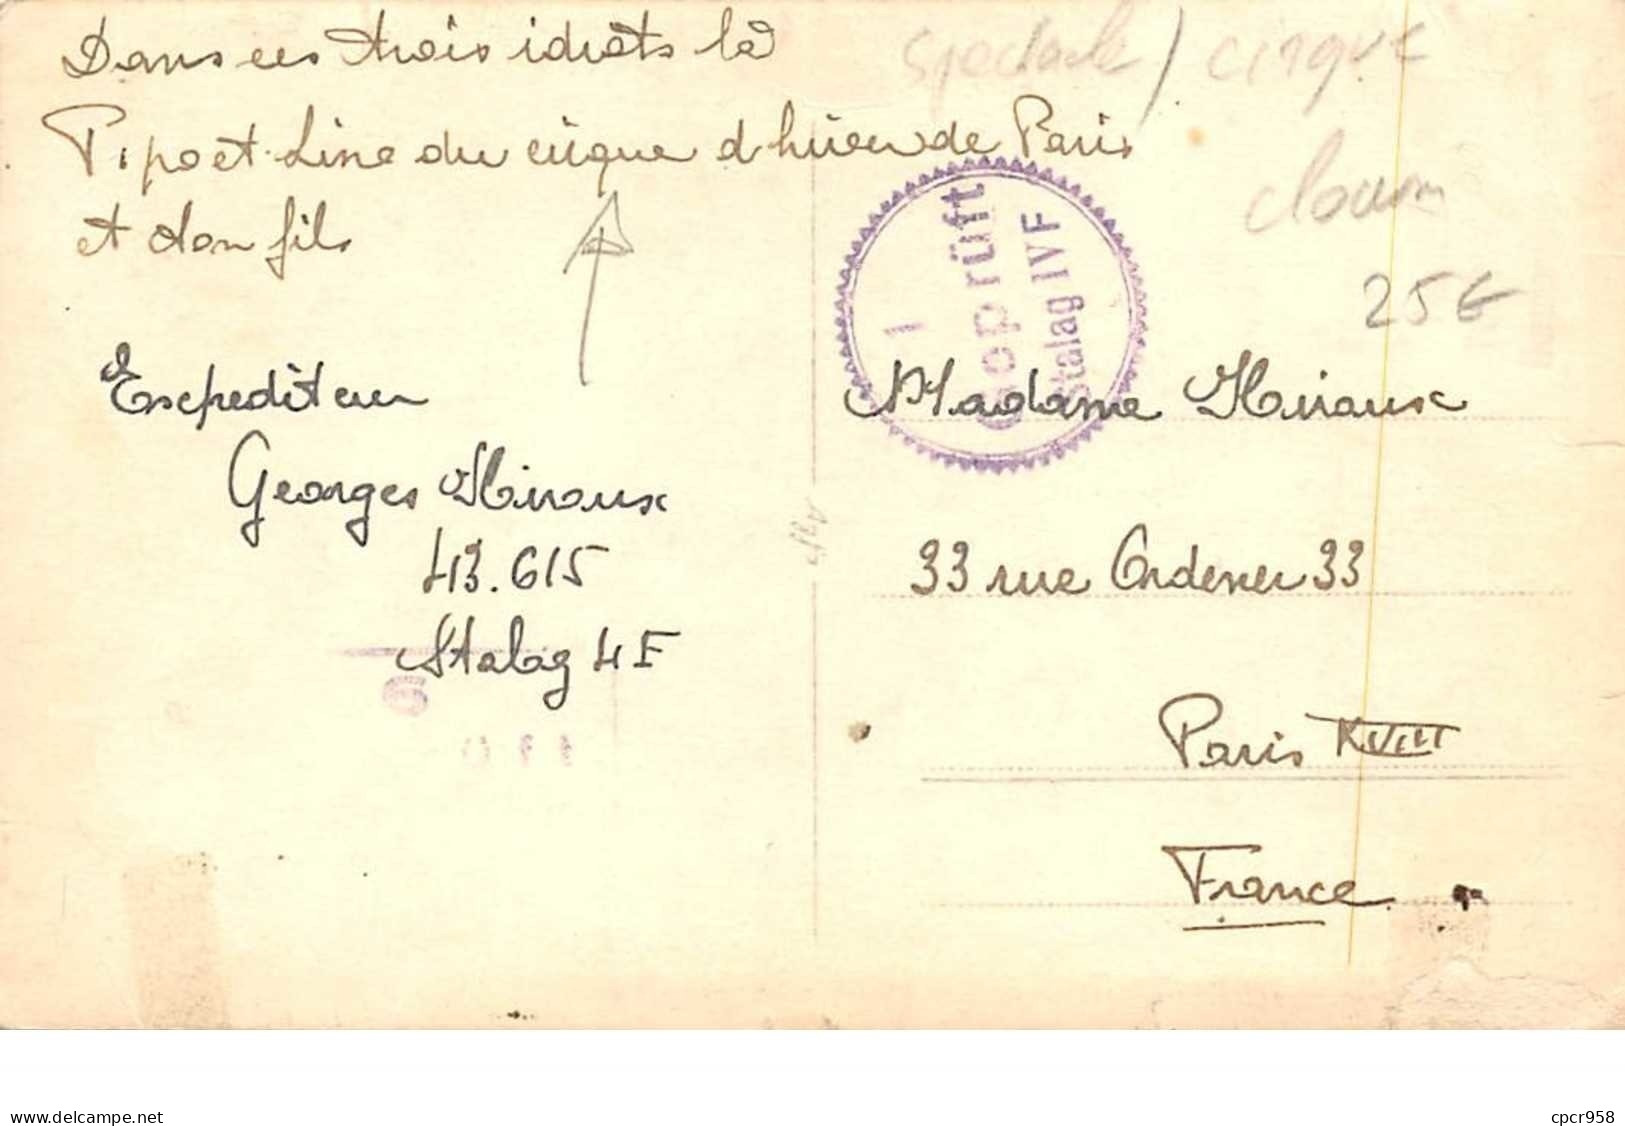 Dans ces trois idiots là
Pipo et Line du cirque d hiver de Paris
et don fils
spectacle / cirque
clown
25€
1
Geprüft
Stalag IVF
Expediteur
Georges Miraux
43.615
Stalag 4F
Madame Miraux
33 rue Ordener 33
Paris XVIII
France
www.delcampe.net
cpcr958